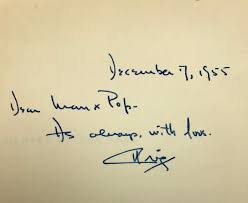 December 7, 1955
Dear Mam & Pop.
As always, with love.
Chris